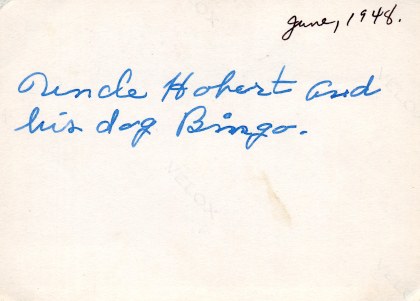 June, 1948.
Uncle Hobert and
his dog Bingo.